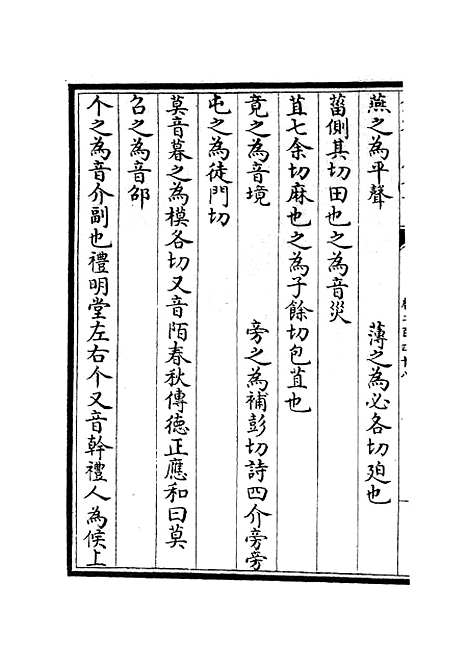 燕之為平聲　薄之為必各切廹也
菑側其切田也之為音災
苴七余切麻也之為子餘切包苴也
竟之為音境　旁之為補彭切詩四介旁旁
屯之為徒門切
莫音暮之為模各切又音陌春秋傳徳正應和曰莫
召之為音邵
个之為音介副也禮明堂左右个又音幹禮人為侯上